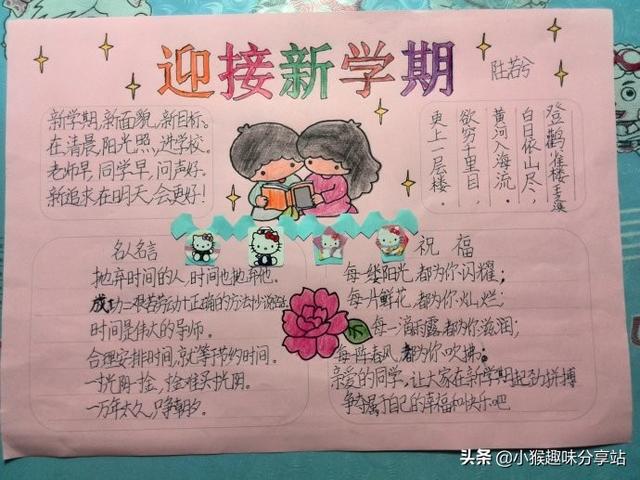 迎接新学期
陆若兮
新学期,新面貌,新目标。
在清晨,阳光照,进学校。
老师早,同学早,问声好。
新追求在明天,会更好!
登鹳雀楼 王涣
白日依山尽,
黄河入海流。
欲穷千里目,
更上一层楼。
名人名言
抛弃时间的人,时间也抛弃他。
成功=艰苦劳动+正确的方法+少说空话
时间是伟大的导师。
合理安排时间,就等于节约时间。
一寸光阴一寸金,寸金难买寸光阴。
一万年太久,只争朝夕。
祝福
每一缕阳光,都为你闪耀;
每一片鲜花,都为你灿烂;
每一滴雨露,都为你滋润;
每一阵春风,都为你吹拂。
亲爱的同学,让大家在新学期起劲拼搏
争夺属于自己的幸福和快乐吧
头条 @小猴趣味分享站